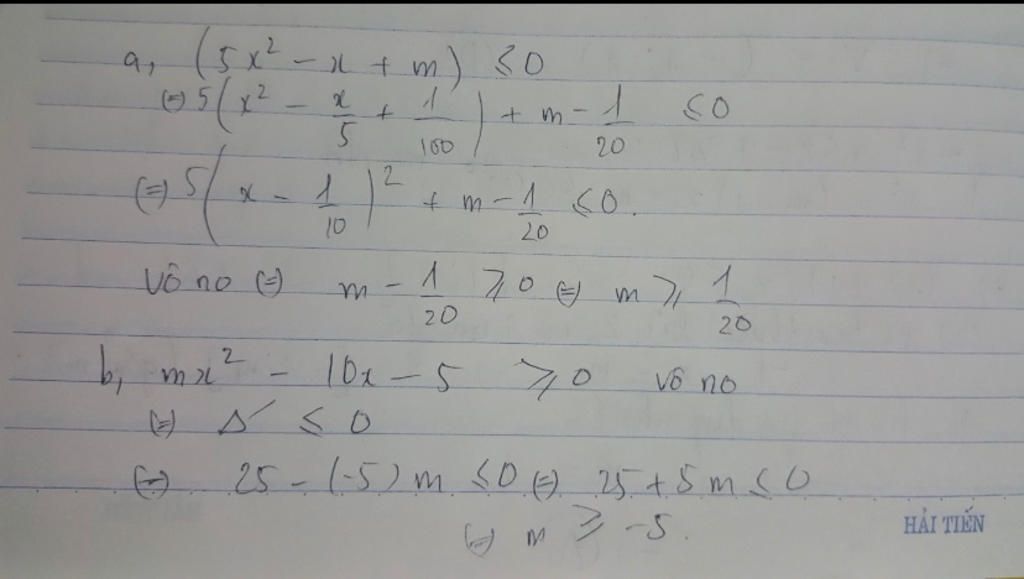 a, (5x² - x + m) ≤ 0
(=) 5(x² - x/5 + 1/100) + m - 1/20 ≤ 0
(=) 5(x - 1/10)² + m - 1/20 ≤ 0.
Vô no (=) m - 1/20 ≥ 0 (=) m ≥ 1/20
b, mx² - 10x - 5 ≥ 0 vô no
(=) Δ′ ≤ 0
(=) 25 - (-5)m ≤ 0 (=) 25 + 5m ≤ 0
(=) m ≥ -5.
HẢI TIẾN